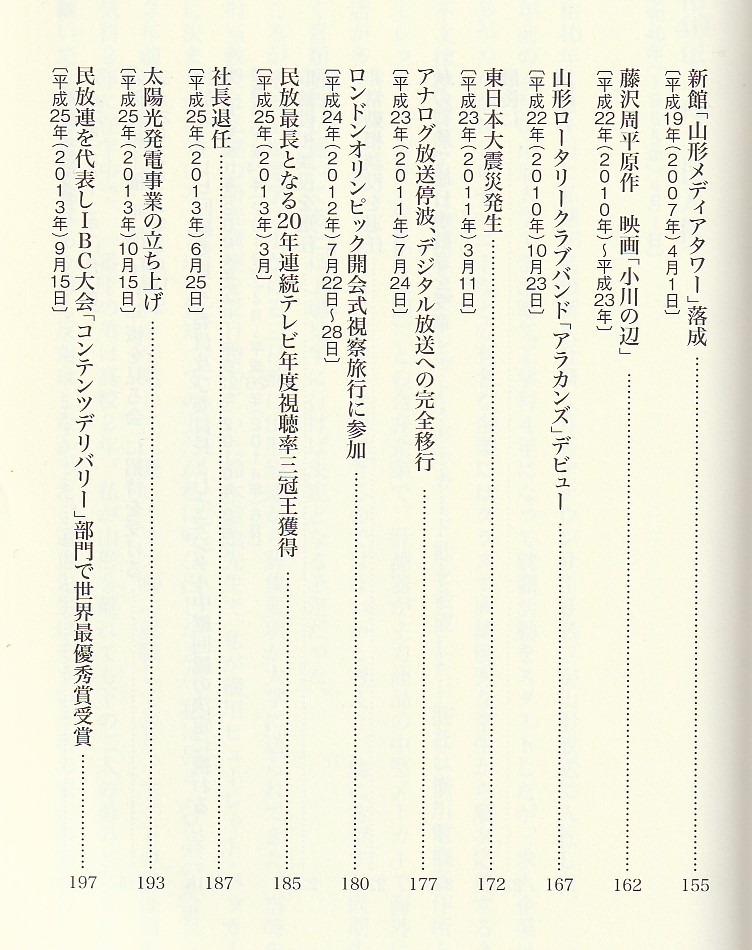 新館「山形メディアタワー」落成……………………………………155
〔平成19年(2007年)4月1日〕
藤沢周平原作　映画「小川の辺」……………………………………162
〔平成22年(2010年)～平成23年〕
山形ロータリークラブバンド「アラカンズ」デビュー……………………………………167
〔平成22年(2010年)10月23日〕
東日本大震災発生……………………………………172
〔平成23年(2011年)3月11日〕
アナログ放送停波、デジタル放送への完全移行……………………………………177
〔平成23年(2011年)7月24日〕
ロンドンオリンピック開会式視察旅行に参加……………………………………180
〔平成24年(2012年)7月22日～28日〕
民放最長となる20年連続テレビ年度視聴率三冠王獲得……………………………………185
〔平成25年(2013年)3月〕
社長退任……………………………………187
〔平成25年(2013年)6月25日〕
太陽光発電事業の立ち上げ……………………………………193
〔平成25年(2013年)10月15日〕
民放連を代表しIBC大会「コンテンツデリバリー」部門で世界最優秀賞受賞……………197
〔平成25年(2013年)9月15日〕